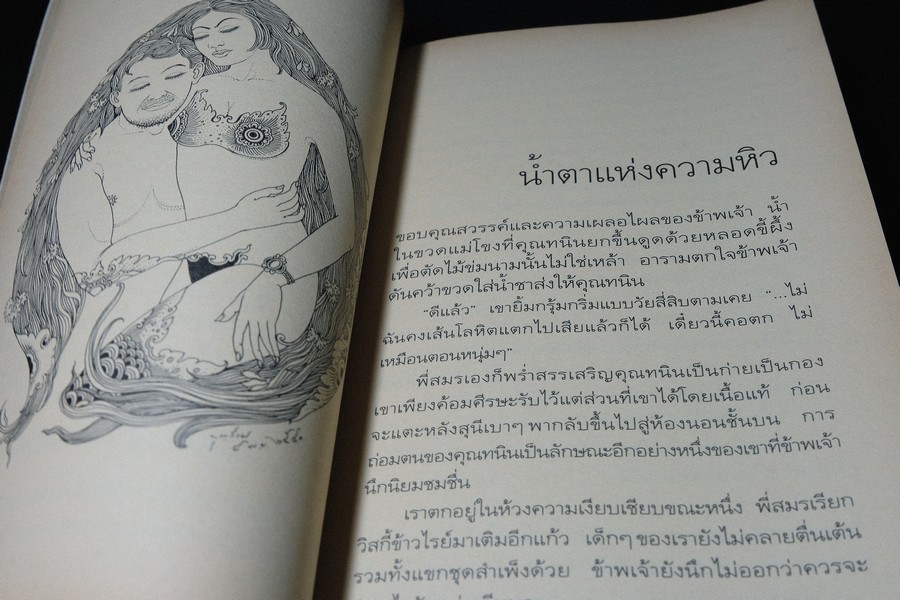 น้ำตาแห่งความหิว
ขอบคุณสวรรค์และความเผลอไผลของข้าพเจ้า น้ำ
ในขวดแม่โขงที่คุณทนินยกขึ้นดูดด้วยหลอดขี้ผึ้ง
เพื่อตัดไม้ข่มนามนั้นไม่ใช่เหล้า อารามตกใจข้าพเจ้า
ดันคว้าขวดใส่น้ำชาส่งให้คุณทนิน
"ดีแล้ว" เขายิ้มกรุ้มกริ่มแบบวัยสี่สิบตามเคย "...ไม่
ฉันคงเส้นโลหิตแตกไปเสียแล้วก็ได้ เดี๋ยวนี้คอตก ไม่
เหมือนตอนหนุ่มๆ"
พี่สมรเองก็พร่ำสรรเสริญคุณทนินเป็นก่ายเป็นกอง
เขาเพียงค้อมศีรษะรับไว้แต่ส่วนที่เขาได้โดยเนื้อแท้ ก่อน
จะแตะหลังสุนีเบาๆ พากลับขึ้นไปสู่ห้องนอนชั้นบน การ
ถ่อมตนของคุณทนินเป็นลักษณะอีกอย่างหนึ่งของเขาที่ข้าพเจ้า
นึกนิยมชมชื่น
เราตกอยู่ในห้วงความเงียบเชียบขณะหนึ่ง พี่สมรเรียก
วิสกี้ข้าวไรย์มาเติมอีกแก้ว เด็กๆ ของเรายังไม่คลายตื่นเต้น
รวมทั้งแขกชุดสำเพ็งด้วย ข้าพเจ้ายังนึกไม่ออกว่าควรจะ